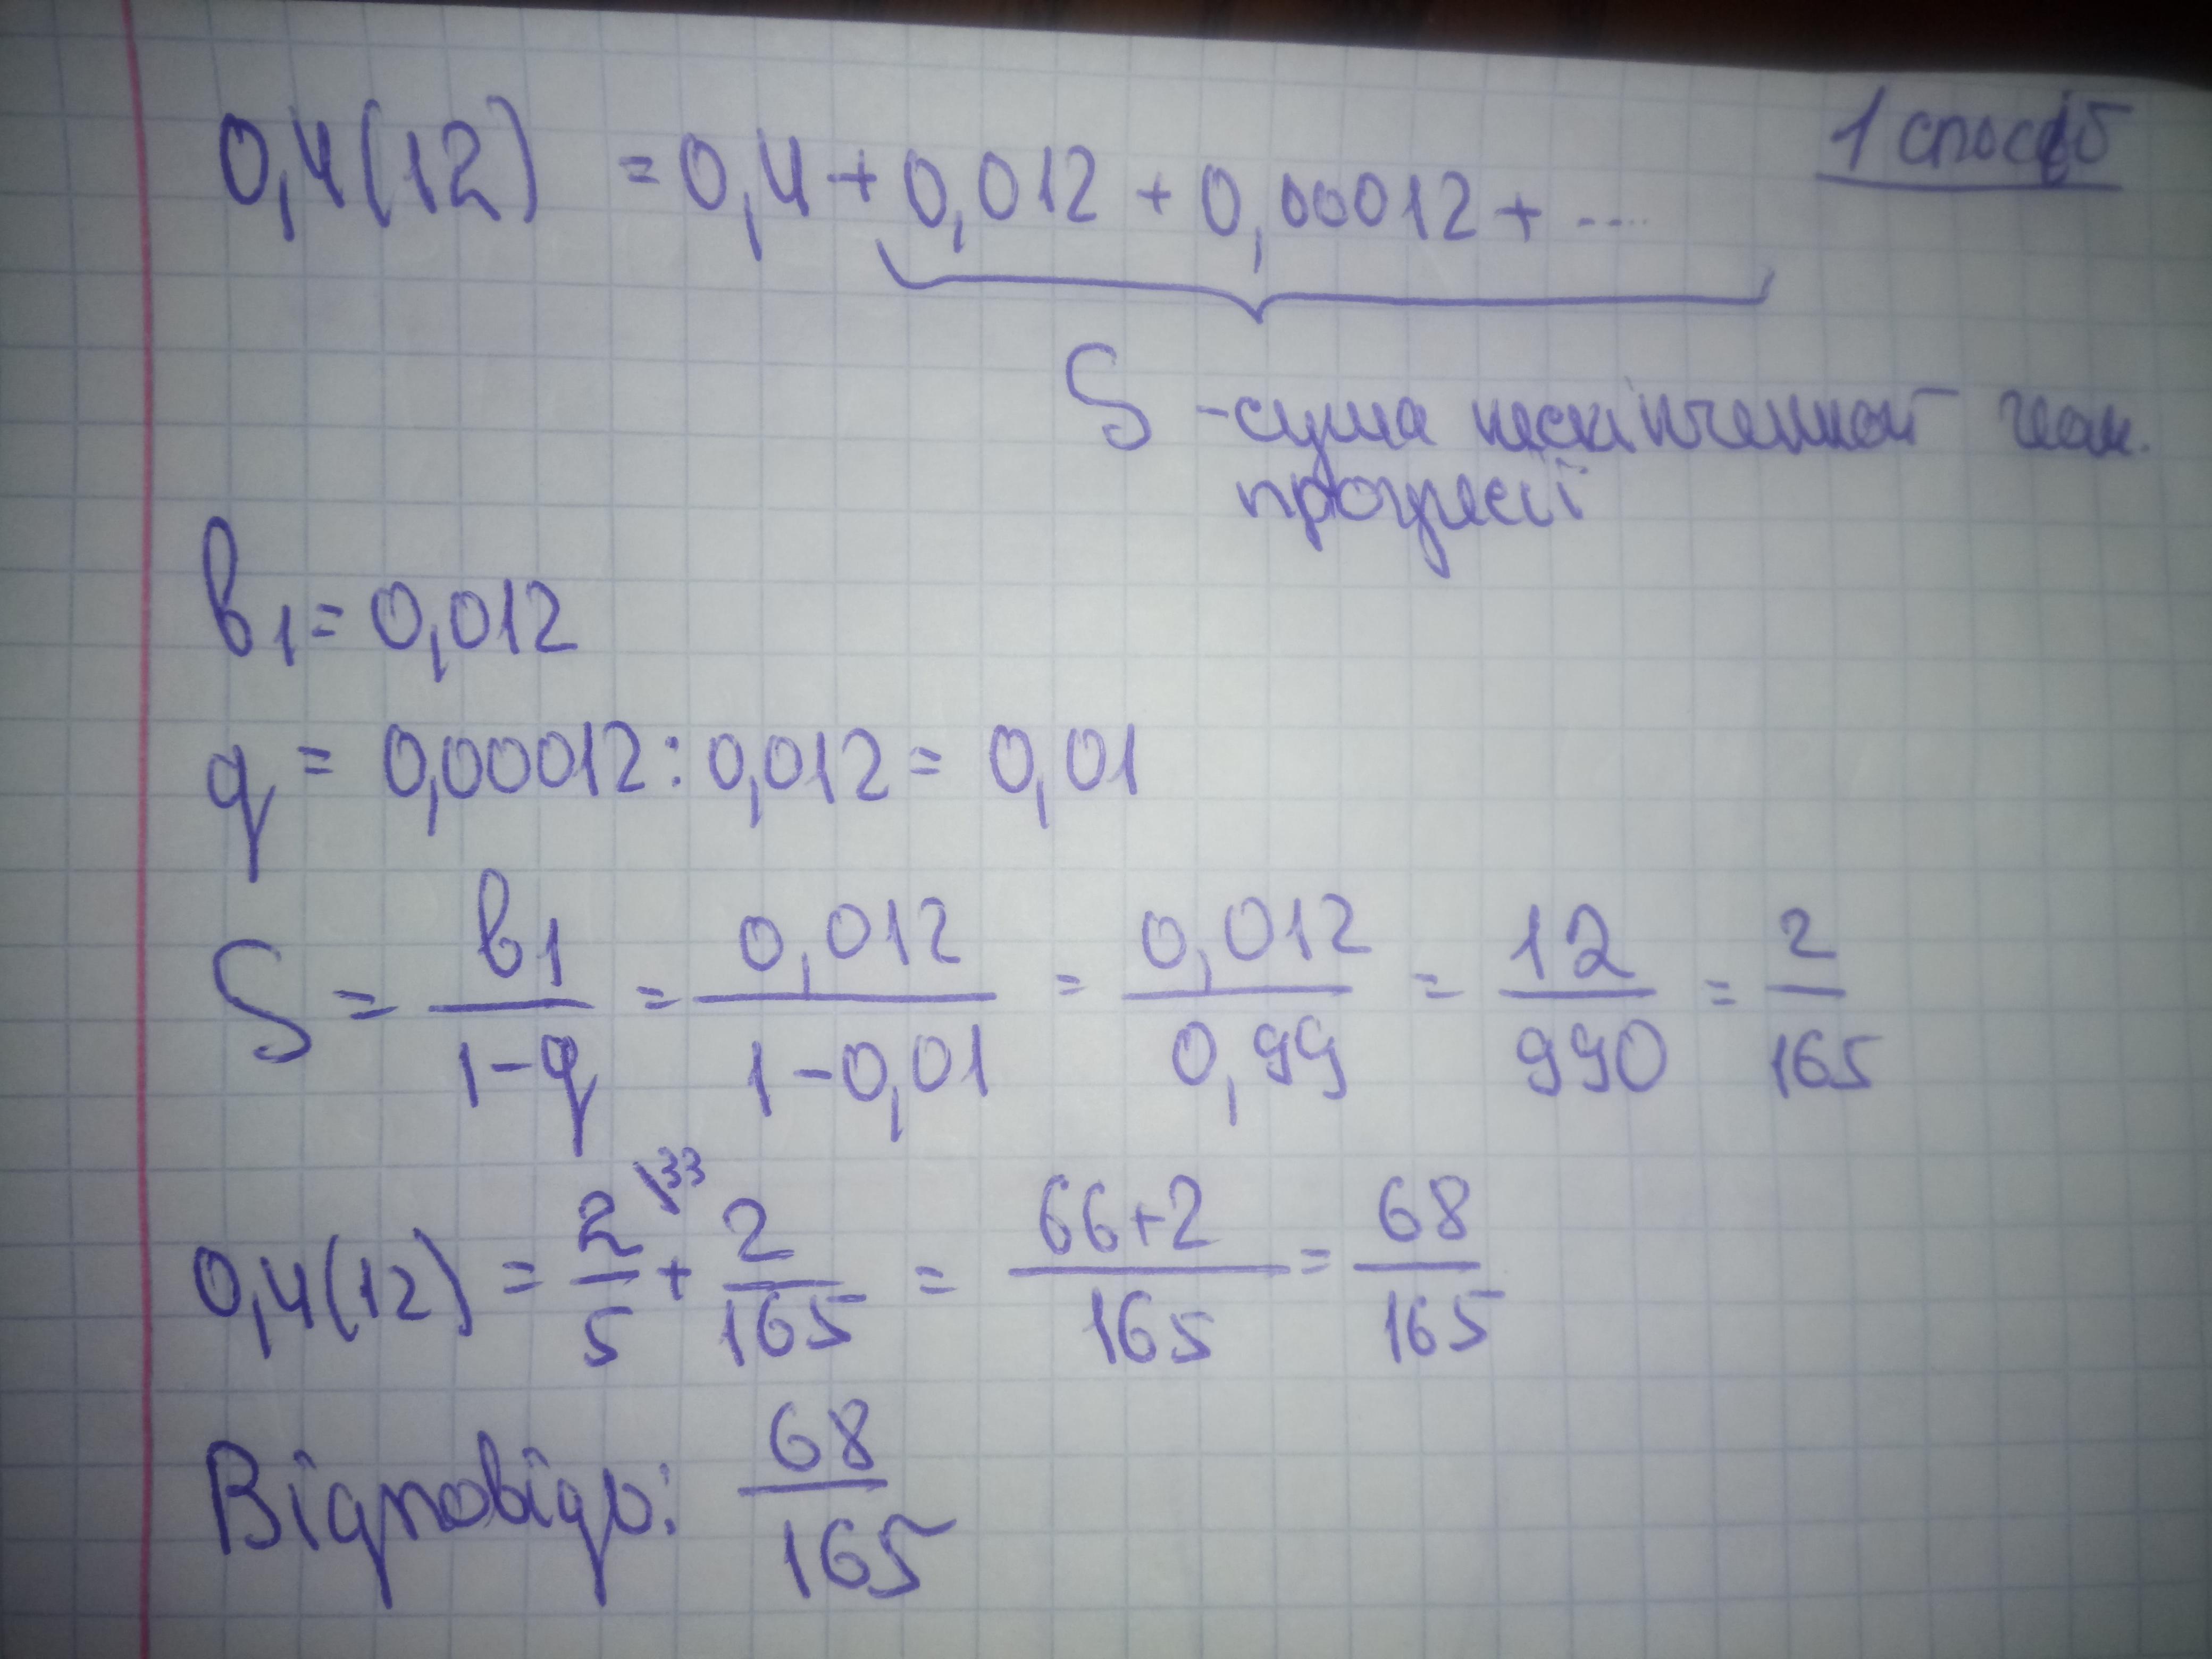 1 спосіб
0,4(12) = 0,4 + 0,012 + 0,00012 + ....
S - сума нескінченної геом.
прогресії
b₁ = 0,012
q = 0,00012 : 0,012 = 0,01
S = b₁/(1-q) = 0,012/(1-0,01) = 0,012/0,99 = 12/990 = 2/165
0,4(12) = 2/5 \33 + 2/165 = (66+2)/165 = 68/165
Відповідь: 68/165